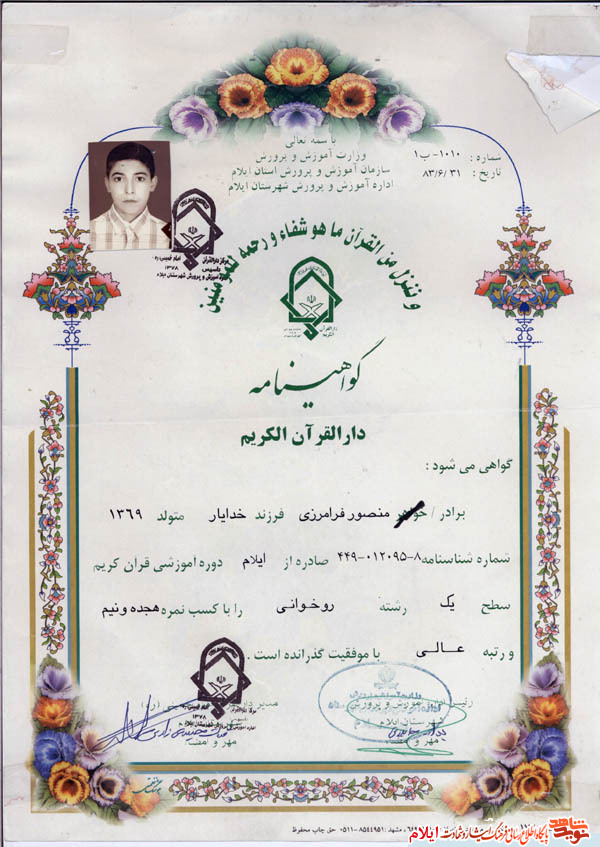 با سمه تعالی
وزارت آموزش و پرورش
سازمان آموزش و پرورش استان ایلام
اداره آموزش و پرورش شهرستان ایلام
شماره : ۱۰۱۰-ب۱
تاریخ : ۸۳/۶/۳۱
و ننزل من القرآن ما هو شفاء و رحمة للمؤمنین
دارالقرآن الکریم
مرکز دارالقرآن
تاسیس
۱۳۷۸
گواهینامه
دارالقرآن الکریم
گواهی می شود :
برادر / خواهر منصور فرامرزی فرزند خدایار متولد ۱۳۶۹
شماره شناسنامه ۸-۰۱۲۰۹۵-۴۴۹ صادره از ایلام دوره آموزشی قرآن کریم
سطح یک رشته روخوانی را با کسب نمره هجده و نیم
و رتبه عالی با موفقیت گذرانده است .
رئیس آموزش و پرورش
شهرستان ایلام
مهر و امضاء
مدیر
۱۳۷۸
مهر و امضاء
مشهد : ۸۵۴۴۹۵۱-۰۵۱۱ حق چاپ محفوظ
نوید شاهد پایگاه اطلاع رسانی فرهنگ ایثار و شهادت ایلام